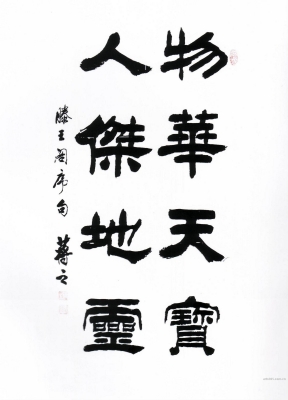 物華天寶
人傑地靈
滕王阁序句